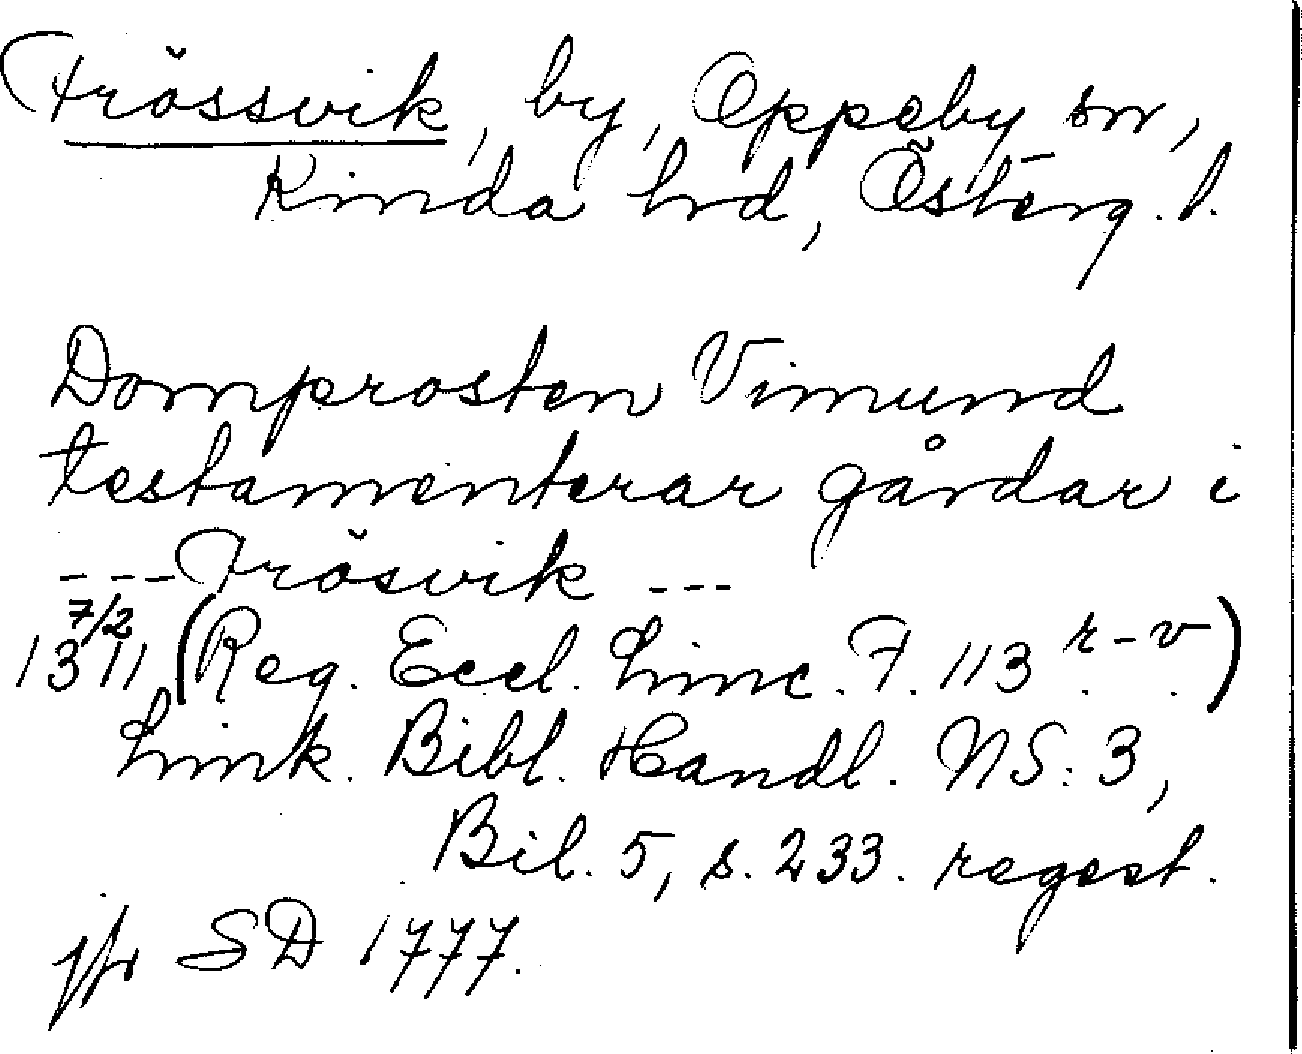 Frössvik, by, Oppeby sn,
Kinda hrd, Österg. l.
Domprosten Vimund
testamenterar gårdar i
--- Frösvik ---
7/2
1311 (Reg. Eccl. Linc. F. 113 r-v)
Link. Bibl. Handl. NS: 3,
Bil. 5, s. 233. regest.
jfr SD 1777.